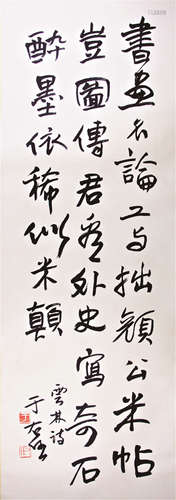 書畫不論工与拙顏公米帖
豈圖傳君看外史寫奇石
醉墨依稀似米顛
雲林詩
于右任